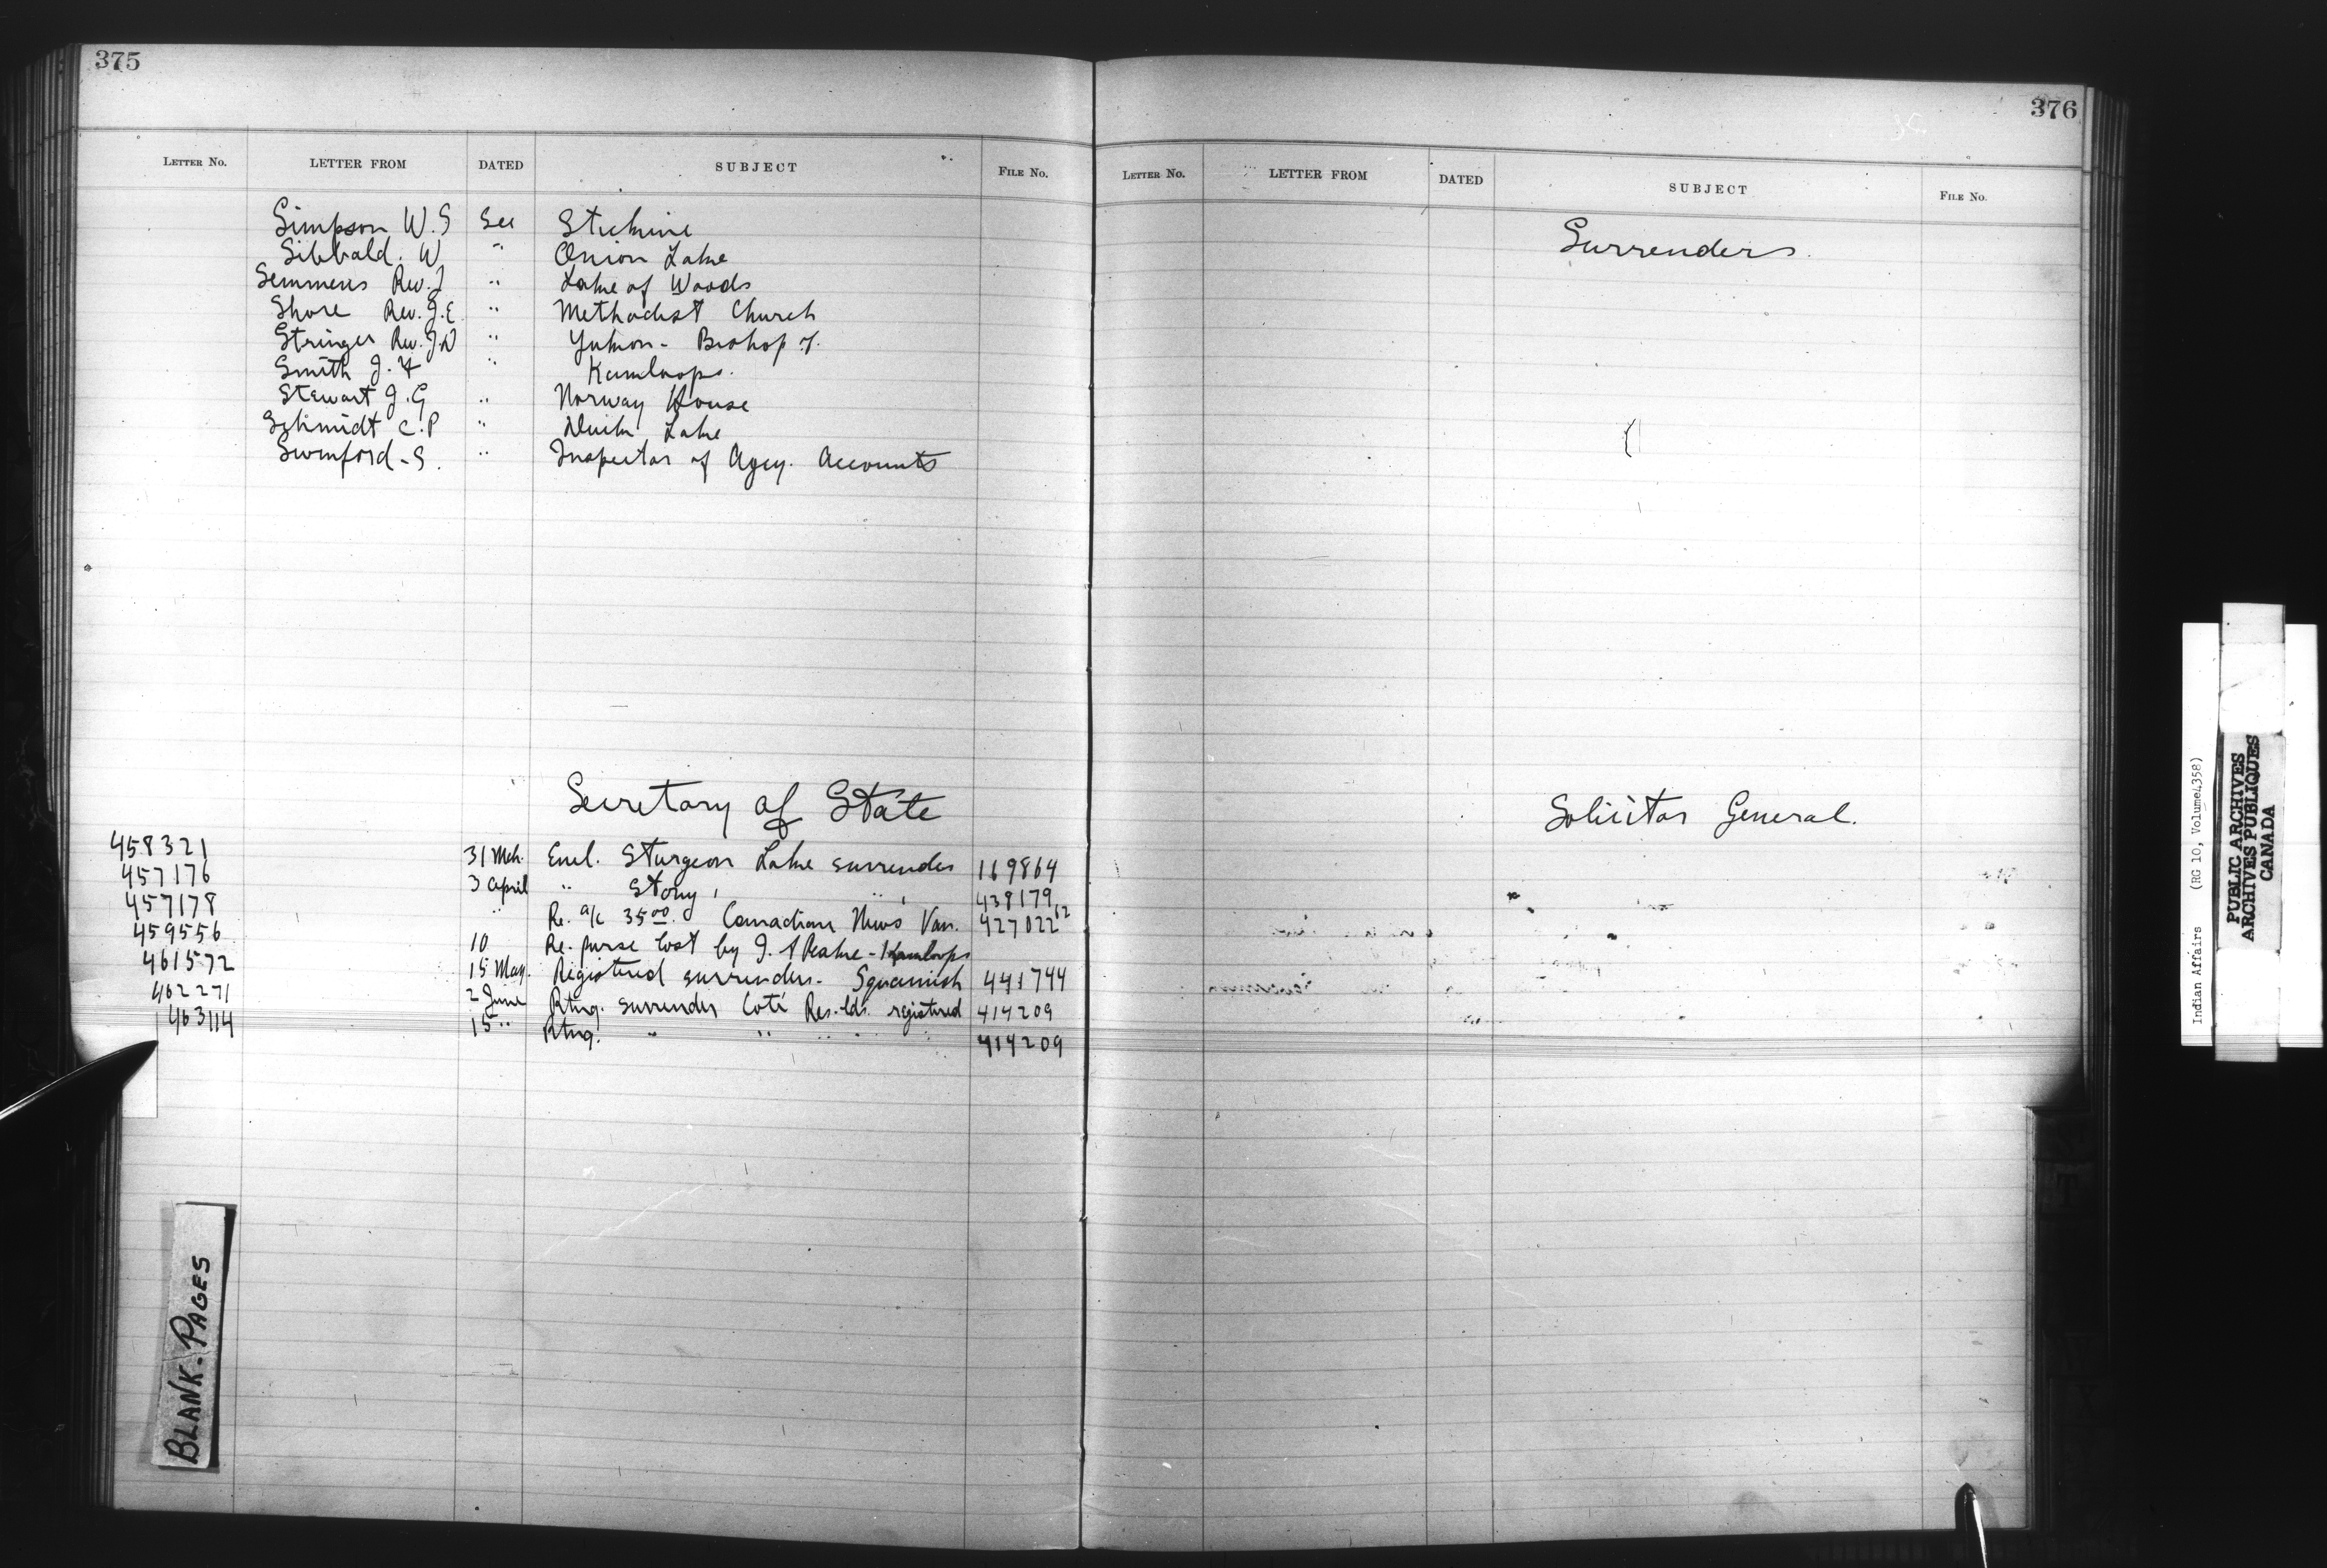 375
LETTER NO. LETTER FROM DATED SUBJECT FILE NO.
Simpson W.S See Stickine
Sibbald. W " Onion Lake
Semmens Rev. J " Lake of Woods
Shore Rev. J.E. " Methodist Church
Stringer Rev. J.W " Yukon - Bishop of.
Smith J. F " Kamloops.
Stewart J. G " Norway House
Schmidt C. P " Duck Lake
Swinford - S. " Inspector of Agcy. Accounts
Secretary of State
458321 31 Mch. Encl. Sturgeon Lake surrender 169864
457176 3 April " Stony " " 438179
457178 " Re. a/c 35.00. Canadian News Van. 427022 12
459556 10 Re. purse lost by J. - Kamloops
461572 15 May. Registered surrender - Squamish 441744
462271 2 June Rtng. surrender Coté Res. lds. registered 414209
463114 15 " Rtng. " " " " 414209
BLANK-PAGES
376
LETTER NO. LETTER FROM DATED SUBJECT FILE NO.
Surrenders.
Solicitor General.
Indian Affairs (RG 10, Volume 4,358)
PUBLIC ARCHIVES
ARCHIVES PUBLIQUES
CANADA